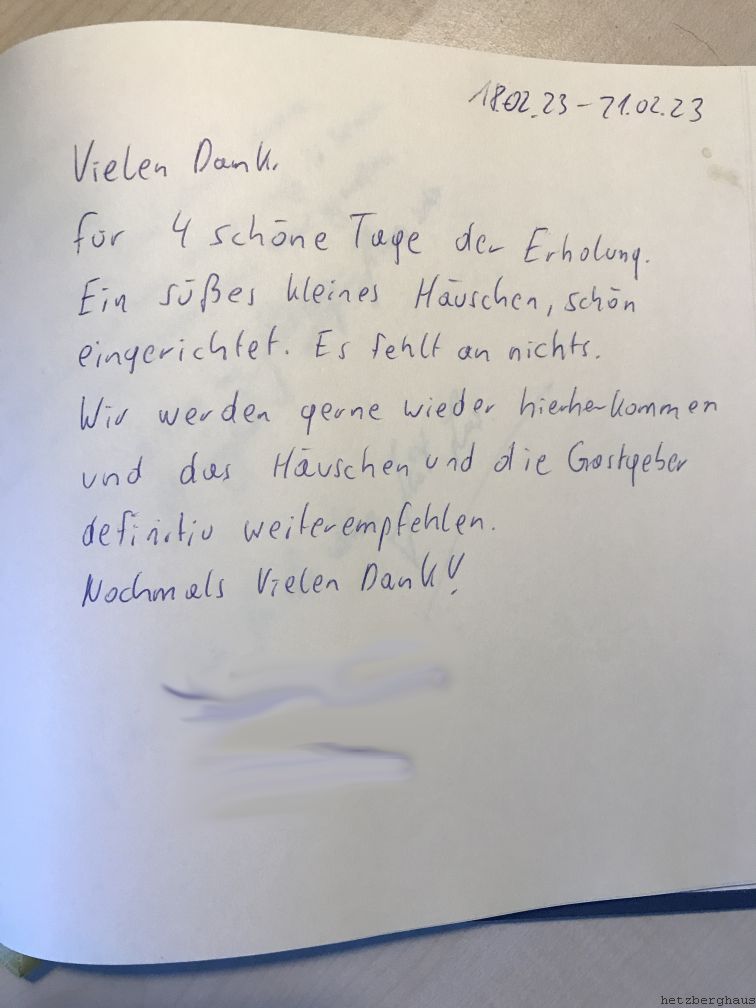 18.02.23 - 21.02.23
Vielen Dank.
für 4 schöne Tage der Erholung.
Ein süßes kleines Häuschen, schön
eingerichtet. Es fehlt an nichts.
Wir werden gerne wieder hierherkommen
und das Häuschen und die Gastgeber
definitiv weiterempfehlen.
Nochmals Vielen Dank!
hetzberghaus